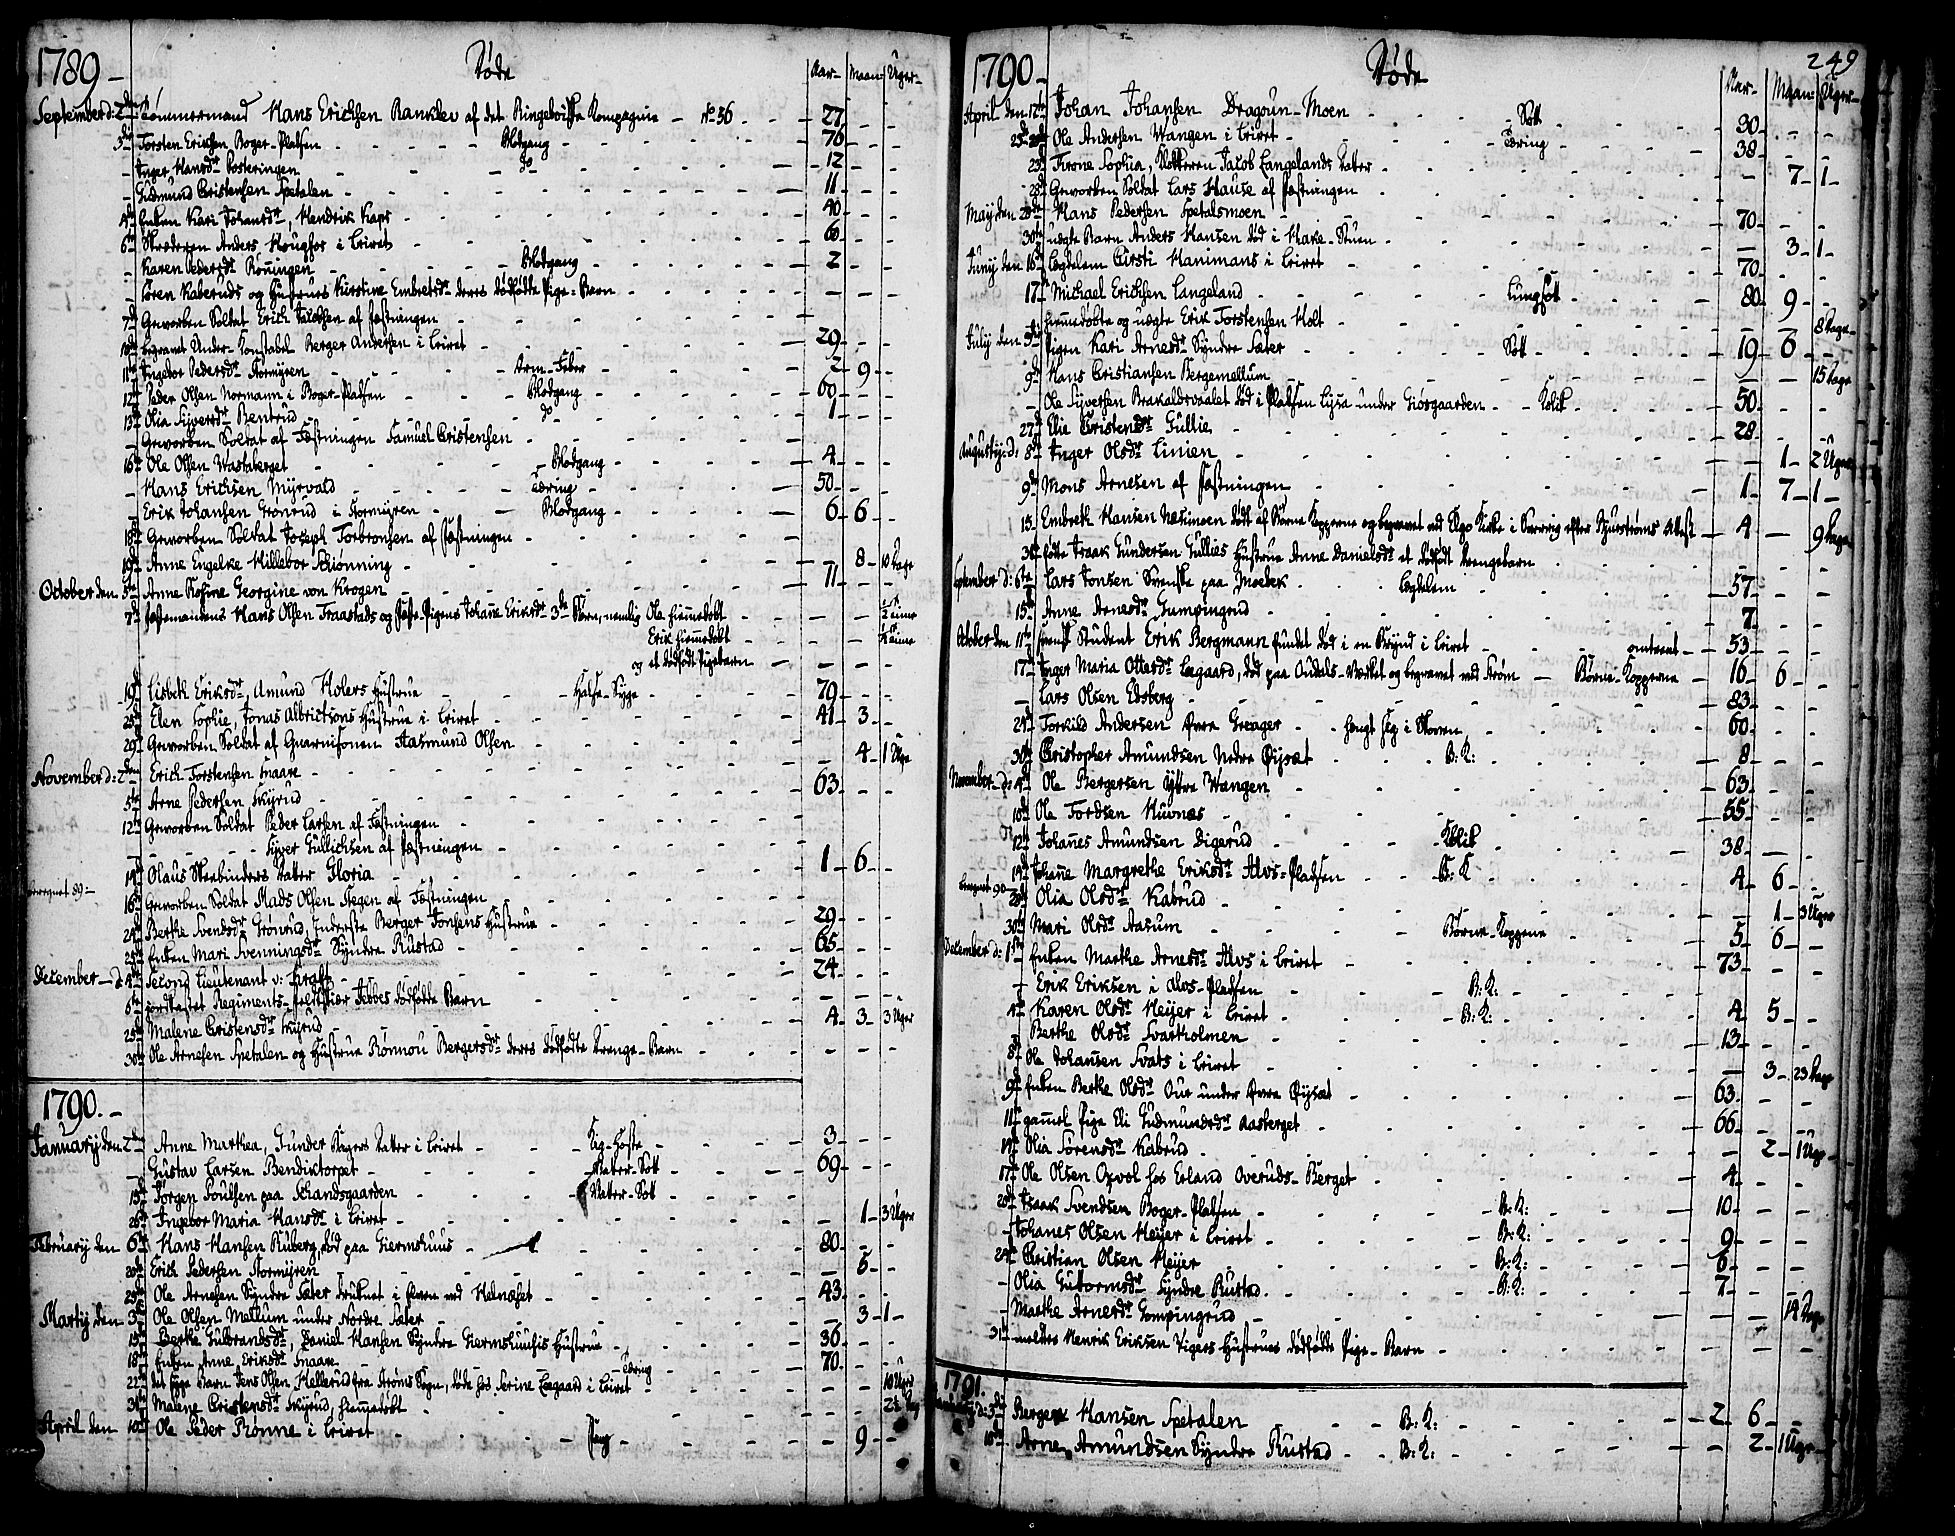 1789 - Døde Aar - Maan: Uger -
September d: 2den Tømmermand Hans Erichsen Ranklev af det Ringeboiske Kompagnie - No 36 - 27 -
3die Torsten Eriksen Boger-Pladsen - Blodgang - 76 -
- Inger Hansdr Posteringen - do - 12 -
- Gudmund Cristensen Spetalen - 11 -
4de Enken Kari Johansdr, Hendrik Kaps - 40 -
6te Skræderen Anders Hougfos i Leiret - 60 -
- Karen Pedersdr Røningen - Blodgang - 2 -
- Søren Kaberuds og Hustrues Kirstine Embretsdr deres dødfødte Pige-Barn -
7de Gevorben Soldat Erich Jacobsen af Fæstningen -
10de begravet Under-Konstabel Berger Andersen i Leiret - 29 -
11te Ingebor Pedersdr Stormyren - Orm-Feber - 2 - 9 -
12te Peder Olsen Normann i Boger-Pladsen - Blodgang - 60 -
13de Olia Syversdr Bentrud - do - 1 -
- Gevorben Soldat af Fæstningen Samuel Cristensen -
16de Ole Olsen Wastaberget - Blodgang - 4 -
- Hans Erichsen Myrvold - Tæring - 50 -
- Erik Johansen Grønrud i Stormyren - Blodgang - 6 - 6 -
18de Gevorben Soldat Joseph Torbronsen af Fæstningen -
19de Anne Engelke Hillebor Schiønning - 8 - 10 Dage
October den 5te Anne Rosine Georgine von Krogen - 71 -
7de fæstemandens Hans Olsen Traastads og Fæste-Pigens Johane Eriksdr 3de Børn, nemlig Ole hiemmedøbt - 2 time
Erik hiemmedøbt - time
og et dødfødt Pigebarn -
19de Lisbek Eriksdr, Amund Holers Hustrue - Halse-Syge - 79 -
25de Elen Sophie, Jonas Albrictsons Hustrue i Leiret - 41 - 3 -
29de Gevorben Soldat af Guarnisonen Aasmund Olsen -
November d: 2den Erich Torstensen Snaare - 4 - 1 Uge
5te Arne Pedersen Skyrud - 63 -
12te Gevorben Soldat Peder Larsen af Fæstningen -
- Syver Gullichsen af Fæstningen -
14de Olaus Skrebinders Datter Gloria - 1 - 6
beregnet 89 - 16de Gevorben Soldat Mads Olsen Stegen af Fæstningen -
24de Berthe Svendsdr Grønrud, Inderste Berger Jonsens Hustrue - 29 -
25de Enken Mari Svenningsdr Syndre Rustad - 65 -
December - d: 4de Second Lieutenant v: Kraft - 24 -
6te jordkastet Regiments-Feldskiær Jebbes dødfødte Barn -
25de Malene Cristensdr Skyrud - 4 - 3 - 3 Uger
30te Ole Arnesen Spetalen og Hustrue Rønnou Bergersdr deres dødfødte Drenge-Barn -
1790. -
January den 2de Anne Marthea, Gunder Kagers Datter i Leiret - Kig-Hoste - 3 -
- Gustav Larsen Bendiktorpet - Vater-Sott - 69 -
15de Jørgen Poulsen paa Schandsgaarden - Vater-Sot -
26de Ingebor Maria Hansdr i Leiret - 1 - 3 Uger
February den 6te Hans Hansen Ruberg, død paa Giermshuus - 80 -
20de Erich Pedersen Stormyren - 5 -
25de Ole Arnesen Syndre Sæter druknet i Elven ved Helnæset - 43 -
Martij den 3die Ole Olsen Mellum under Nordre Sæter - 3 - 1 -
15de Berthe Gulbrandsdr, Daniel Hansen Syndre Giermshuusis Hustrue - 36 -
18de Enken Anne Eriksdr Snaare - 70 -
22de det syge Barn Jens Olsen Hellerud fra Strøms Sogn, døde hos Serine Lægaard i Leiret - Tæring - 10 Uger
31te Malene Cristensdr Skyrud, hiemmedøbt -
April den 10de Ole Peder Rønne i Leiret - 9 -
1790 - Døde Aar - Maan: Uger - 249
April den 12te Johan Johansen Dragoun-Moen - Sott - 30 -
25de Ole Andersen Wangen i Leiret - Tæring - 38 -
25de Throne Sophia, Slotteren Jacob Langelands Datter - 7 - 1 -
28de Gevorben Soldat Lars Hause af Fæstningen -
May den 20de Hans Pedersen Spetalsmoen - 70 -
30te uægte Barn Anders Hansen død i Hake-Stuen - 3 - 1 -
Juny den 16de Lægdelem Cirsti Hanimans i Leiret - 70 -
17de Michael Erichsen Langeland - Lungsot - 80 - 9 -
- hiemmedøbte og uægte Erik Torstensen Holt - 8 Dage -
July den 3die Pigen Kari Arnesdr Syndre Sæter - Sott - 19 - 6
9de Hans Cristiansen Bergemellum - 15 Dage
- Ole Syversen Brakaldsvaalet død i Pladsen Lysa under Giøsgaarden - Kolik - 50 -
27de Elie Cristensdr Gullie - 28 -
Augustij d: 8de Inger Olsdr Linien - 1 - 2 Uger
9de Mons Arnesen af Fæstningen - 1 - 7 - 1 -
15 Embreth Hansen Næsmoen død af Børne Kopperne og begravet ved Elgo Kirke i Sverrig efter Siustrøms Attest - 4 - 9 Dage
30te fødte Iraak Gundersen Gullies Hustrue Anne Danielsdr et dødfødt Drengebarn -
September d: 6te Lars Jonsen Svenske paa Moebek - Lægdelem - 57 -
15de Anne Arnesdr Gumpingrud - 7 -
October den 11te svensk Student Erik Bergmann fundet død i en Brynd i Leiret - omtrent - 53 -
17de Inger Maria Ottesdr Lægaard, død paa Oudals-Verket og begravet ved Strøm - Børne-Kopperne - 16 - 6 -
- Lars Olsen Edsberg - 83 -
24de Torkild Andersen Øvre Greager - hengt sig i Skoven - 60 -
30te Christopher Amundsen Nedre Øiysæt - B: K: - 8 -
November - d: 4de Ole Bergersen Ytre Wangen - 63 -
10de Ole Tordsen Huvnæs - 55 -
12te Johanes Amundsen Digerud - Kolik - 38 -
14de Johane Margrethe Eriksdr Alvs-Pladsen - B: K - 4 - 6 -
beregnet 90 - 28de Olia Olsdr Kabrud - 1 - 3 Uger
30te Mari Olsdr Aasum - Børne-Koppene - 5 - 6 -
December d: 1ste Enken Marthe Arnesdr Alvs i Leiret - 73 -
- Erik Eriksen i Alvs-Pladsen - B: K: -
4de Karen Olsdr Heyer i Leiret - B: K: - 4 - 5 -
- Berthe Olsdr Svartholmen - 13 -
8de Ole Johansen Svats i Leiret - 3 - 23 Dage
9de Enken Berthe Olsdr Our under Øvre Øiysæt - 63 -
11te gammel Pige Eli Gudmundsdr Aasberget - 66 -
14de Olia Sørensdr Kabrud - 2 - 1 Uge
17de Ole Olsen Opvol hos Erland Overuds-Berget - 4 -
20de Isaak Svendsen Boger-Pladsen - B: K: - 10 -
- Johanes Olsen Heyer i Leiret - B: K: - 9 -
24de Christian Olsen Heyer - B: K: - 6 -
- Olia Guttormsdr Syndre Rustad - B: K: - 7 -
- Marthe Arnesdr Gompingrud - 14 Dage
31te meldtes Henrik Eriksen Vigers Hustrues dødfødte Pige-Barn -
1791.
January d: 3die Berger Hansen Spetalen - B: K: - 2 - 6 -
10de Arne Amundsen Syndre Rustad - B: K: - 2 - 1 Uge -